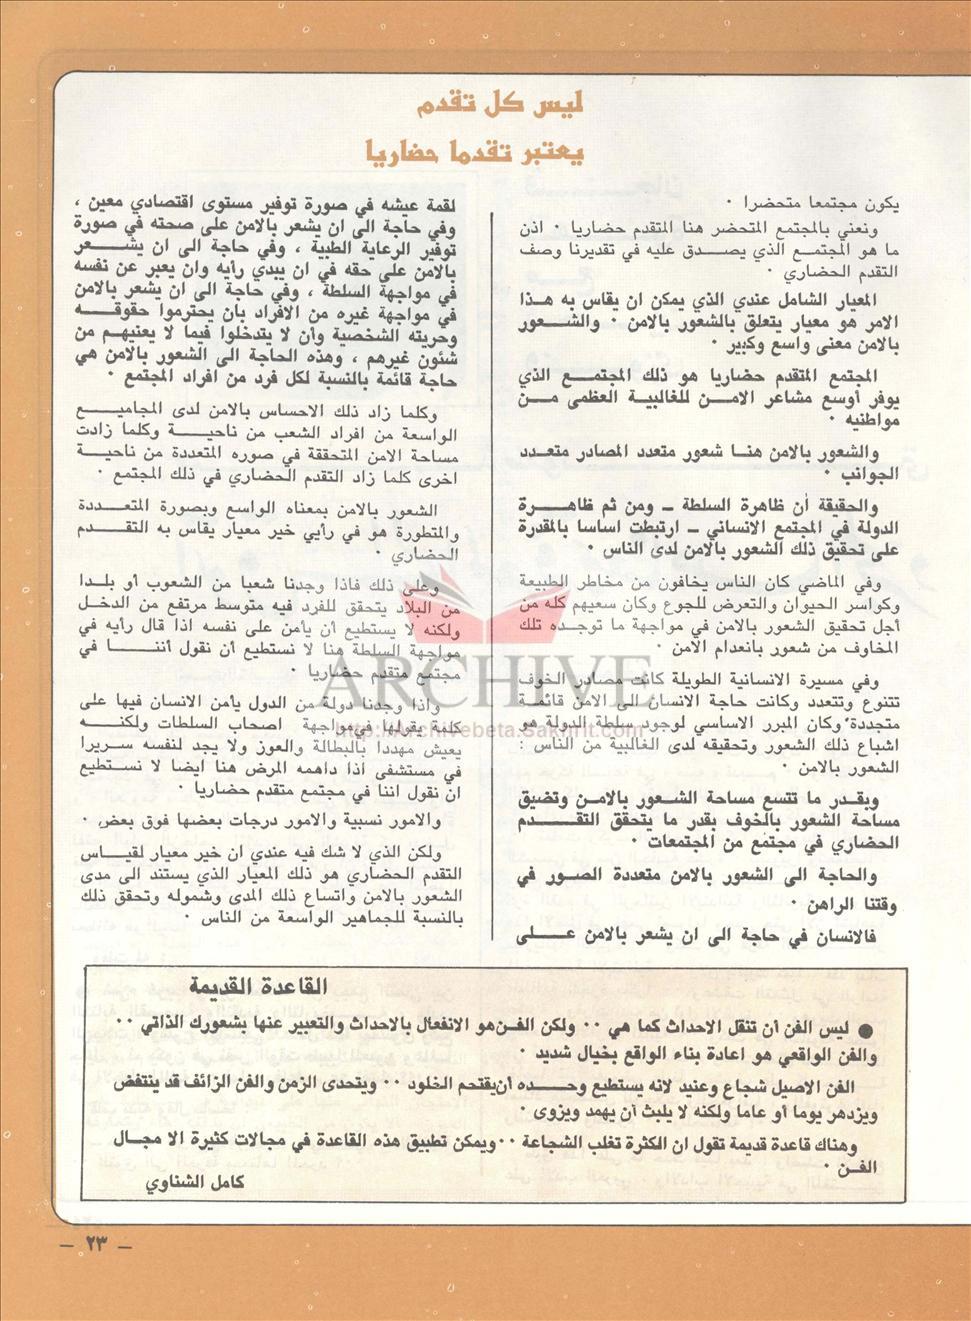 ليس كل تقدم
يعتبر تقدما حضاريا
يكون مجتمعا متحضرا ٠
ونعني بالمجتمع المتحضر هنا المتقدم حضاريا ٠ اذن
ما هو المجتمع الذي يصدق عليه في تقديرنا وصف
التقدم الحضاري ٠
المعيار الشامل عندي الذي يمكن ان يقاس به هذا
الامر هو معيار يتعلق بالشعور بالامن ٠ والشعور
بالامن معنى واسع وكبير ٠
المجتمع المتقدم حضاريا هو ذلك المجتمع الذي
يوفر أوسع مشاعر الامن للغالبية العظمى من
مواطنيه ٠
والشعور بالامن هنا شعور متعدد المصادر متعدد
الجوانب ٠
والحقيقة أن ظاهرة السلطة ــ ومن ثم ظاهرة
الدولة في المجتمع الانساني ــ ارتبطت اساسا بالمقدرة
على تحقيق ذلك الشعور بالامن لدى الناس ٠
وفي الماضي كان الناس يخافون من مخاطر الطبيعة
وكواسر الحيوان والتعرض للجوع وكان سعيهم كله من
أجل تحقيق الشعور بالامن في مواجهة ما توجده تلك
المخاوف من شعور بانعدام الامن ٠
وفي مسيرة الانسانية الطويلة كانت مصادر الخوف
تتنوع وتتعدد وكانت حاجة الانسان الى الامن قائمة
متجددة وكان المبرر الاساسي لوجود سلطة الدولة هو
اشباع ذلك الشعور وتحقيقه لدى الغالبية من الناس :
الشعور بالامن ٠
وبقدر ما تتسع مساحة الشعور بالامن وتضيق
مساحة الشعور بالخوف بقدر ما يتحقق التقدم
الحضاري في مجتمع من المجتمعات ٠
والحاجة الى الشعور بالامن متعددة الصور في
وقتنا الراهن ٠
فالانسان في حاجة الى ان يشعر بالامن على
لقمة عيشه في صورة توفير مستوى اقتصادي معين ،
وفي حاجة الى ان يشعر بالامن على صحته في صورة
توفير الرعاية الطبية ، وفي حاجة الى ان يشعر
بالامن على حقه في ان يبدي رأيه وان يعبر عن نفسه
في مواجهة السلطة ، وفي حاجة الى ان يشعر بالامن
في مواجهة غيره من الافراد بأن يحترموا حقوقه
وحريته الشخصية وأن لا يتدخلوا فيما لا يعنيهم من
شئون غيرهم ، وهذه الحاجة الى الشعور بالامن هي
حاجة قائمة بالنسبة لكل فرد من افراد المجتمع ٠
وكلما زاد ذلك الاحساس بالامن لدى المجاميع
الواسعة من افراد الشعب من ناحية وكلما زادت
مساحة الامن المتحققة في صوره المتعددة من ناحية
اخرى كلما زاد التقدم الحضاري في ذلك المجتمع ٠
الشعور بالامن بمعناه الواسع وبصورة المتعددة
والمتطورة هو في رأيي خير معيار يقاس به التقدم
الحضاري ٠
وعلى ذلك فاذا وجدنا شعبا من الشعوب أو بلدا
من البلاد يتحقق للفرد فيه متوسط مرتفع من الدخل
ولكنه لا يستطيع أن يأمن على نفسه اذا قال رأيه في
مواجهة السلطة هنا لا نستطيع أن نقول أننا في
مجتمع متقدم حضاريا ٠
واذا وجدنا دولة من الدول يأمن الانسان فيها على
كلمة يقولها في مواجهة اصحاب السلطات ولكنه
يعيش مهددا بالبطالة والعوز ولا يجد لنفسه سريرا
في مستشفى اذا داهمه المرض هنا ايضا لا نستطيع
ان نقول اننا في مجتمع متقدم حضاريا ٠
والامور نسبية والامور درجات بعضها فوق بعض ٠
ولكن الذي لا شك فيه عندي ان خير معيار لقياس
التقدم الحضاري هو ذلك المعيار الذي يستند الى مدى
الشعور بالامن واتساع ذلك المدى وشموله وتحقق ذلك
بالنسبة للجماهير الواسعة من الناس ٠
ARCHIVE
http://Archivebeta.Sakhrit.com
القاعدة القديمة
● ليس الفن أن تنقل الاحداث كما هي ٠٠ ولكن الفن هو الانفعال بالاحداث والتعبير عنها بشعورك الذاتي ٠٠
والفن الواقعي هو اعادة بناء الواقع بخيال شديد ٠
الفن الاصيل شجاع وعنيد لانه يستطيع وحده أن يقتحم الخلود ٠٠ ويتحدى الزمن والفن الزائف قد ينتفض
ويزدهر يوما أو عاما ولكنه لا يلبث أن يهمد ويزوى ٠
وهناك قاعدة قديمة تقول ان الكثرة تغلب الشجاعة ٠٠ ويمكن تطبيق هذه القاعدة في مجالات كثيرة الا مجال
الفن ٠
كامل الشناوي
— ٢٣ —